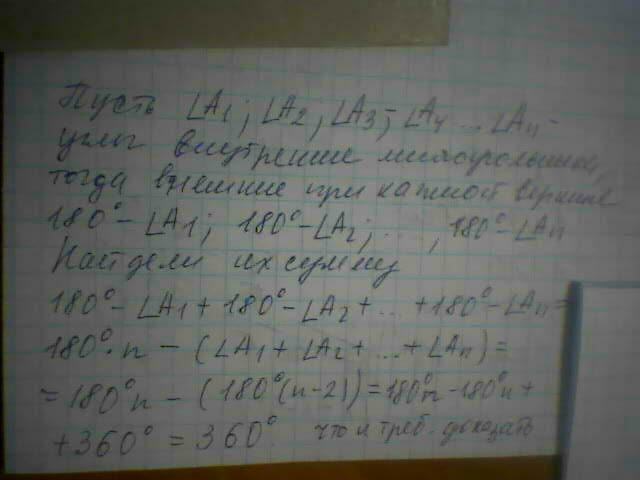 Пусть ∠A1; ∠A2, ∠A3; ∠A4 ... ∠An -
углы внутренние многоугольника,
тогда внешние при каждой вершине
180° - ∠A1; 180° - ∠A2; ... , 180° - ∠An
Найдём их сумму
180° - ∠A1 + 180° - ∠A2 + ... + 180° - ∠An =
180° · n - (∠A1 + ∠A2 + ... + ∠An) =
= 180°n - (180°(n-2)) = 180°n - 180°n +
+ 360° = 360°. что и треб. доказать